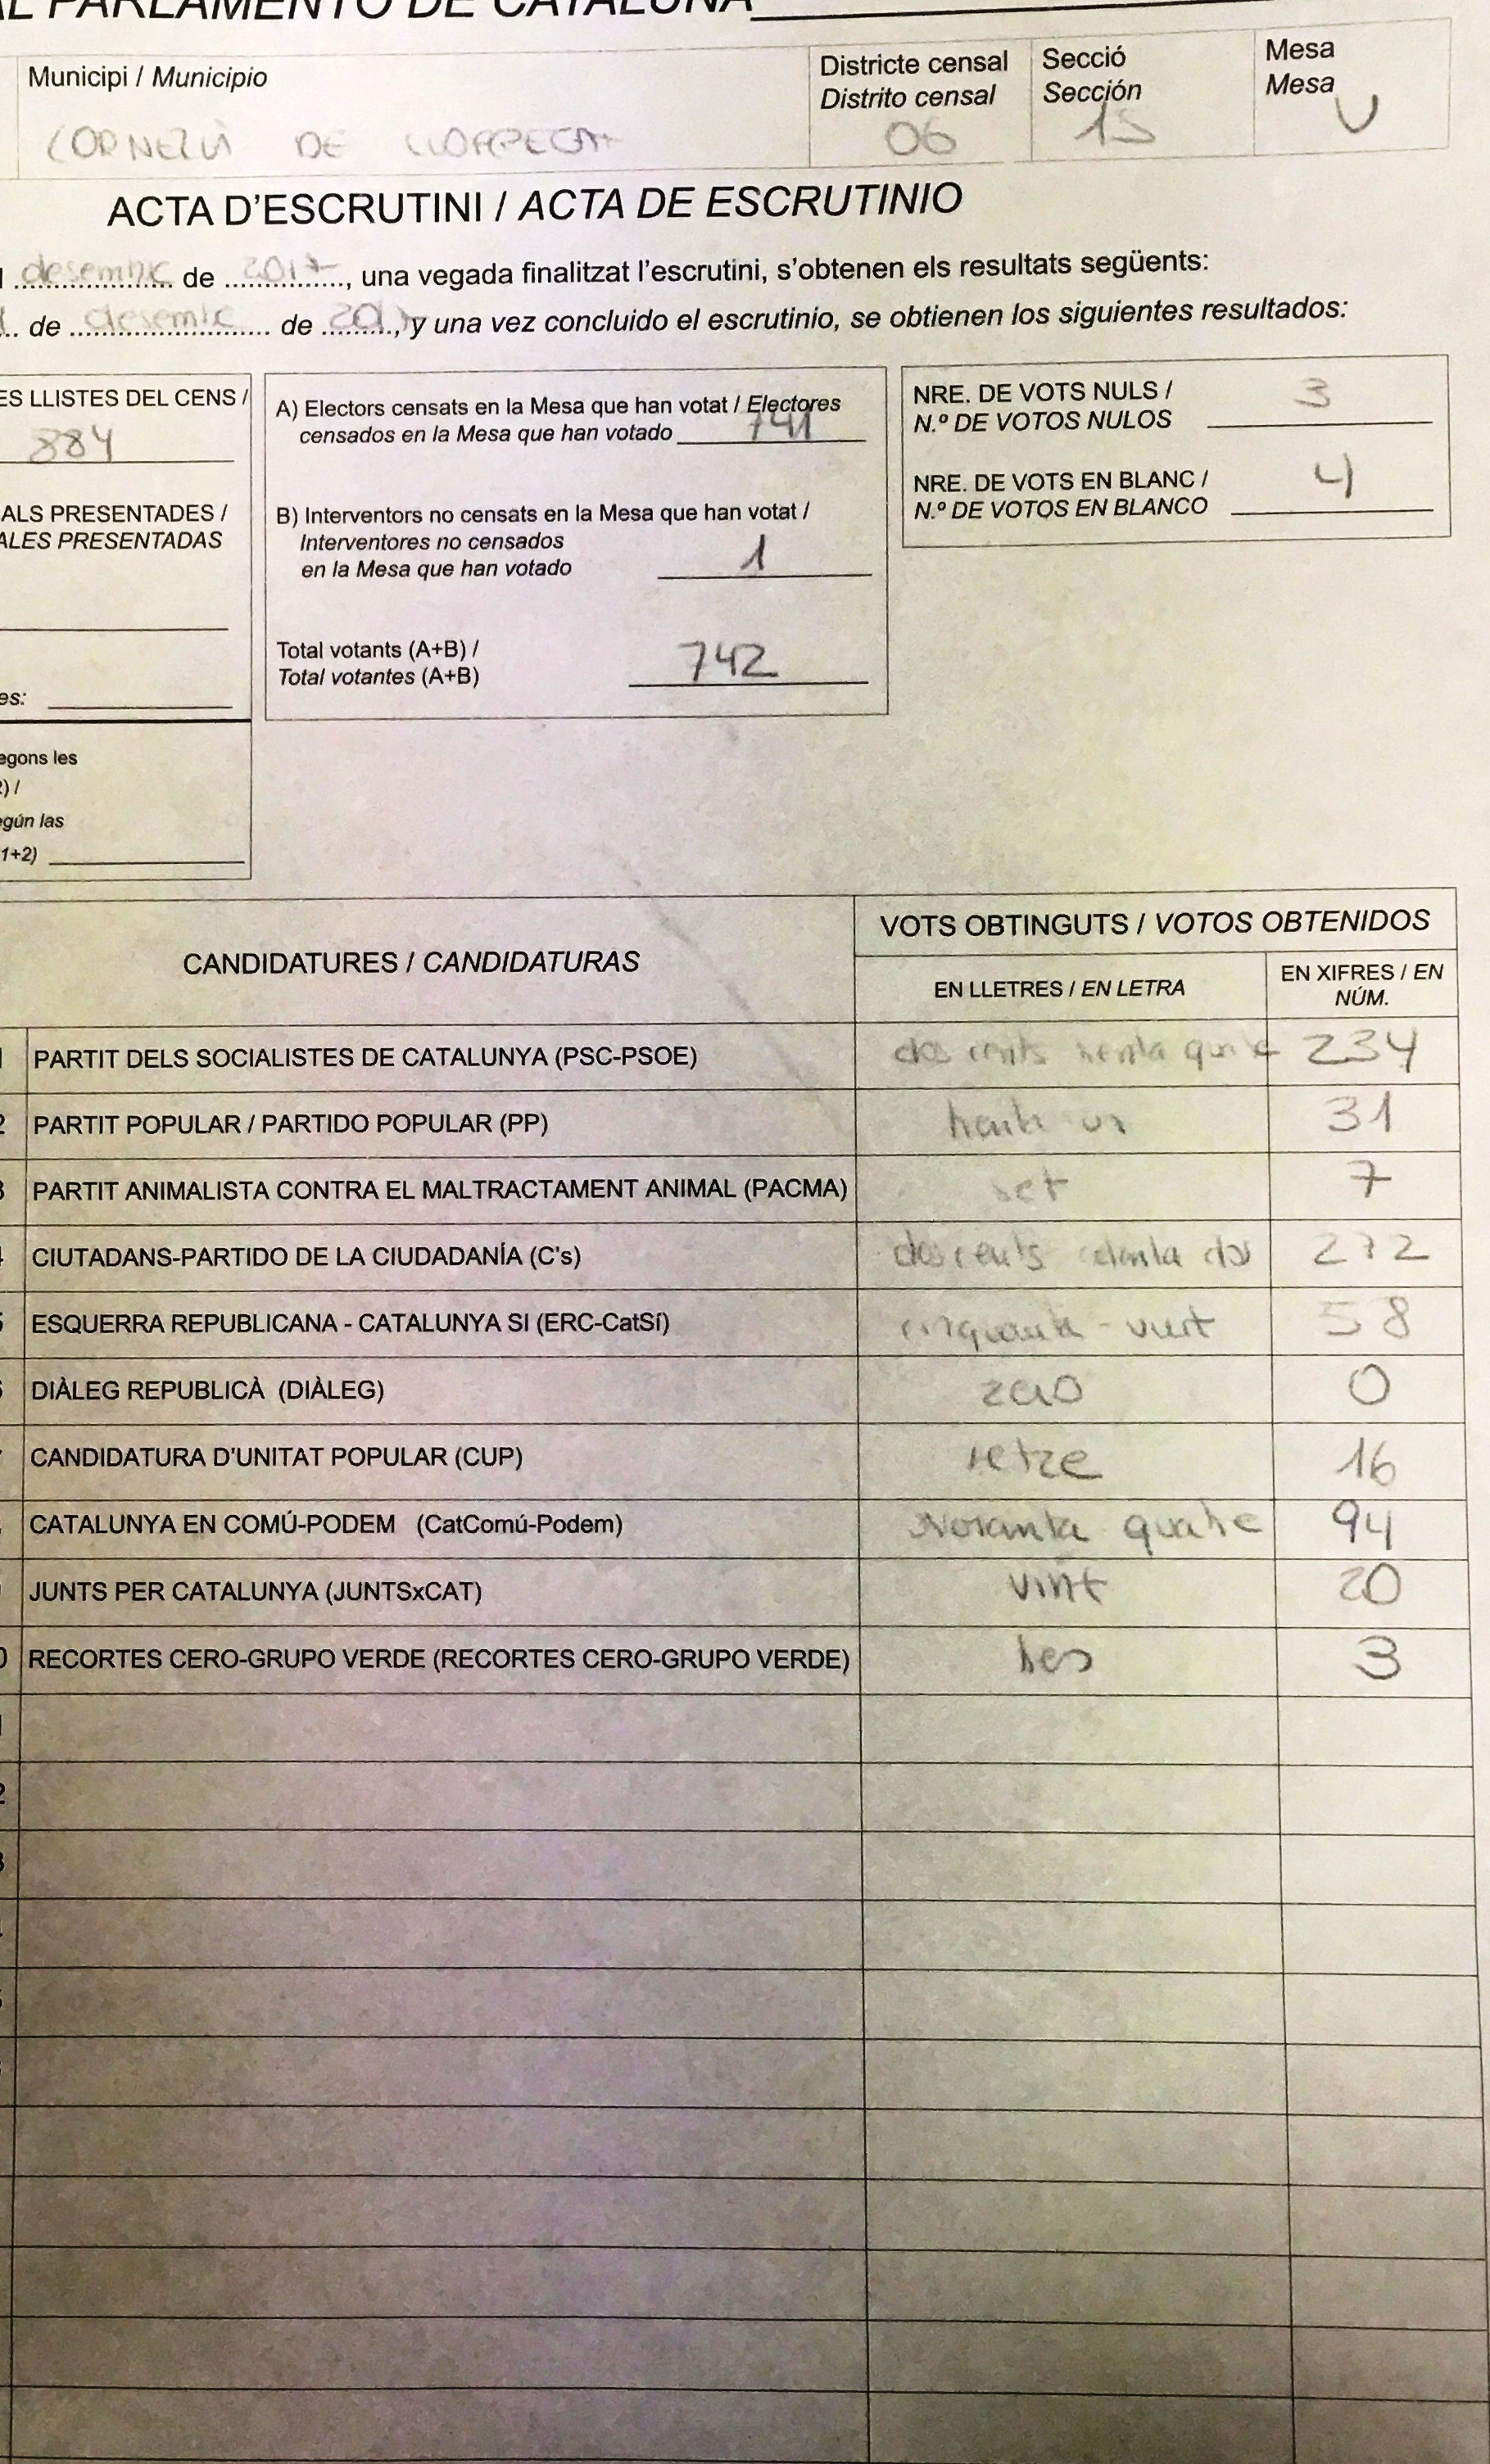 AL PARLAMENTO DE CATALUÑA
Municipi / Municipio
Districte censal
Distrito censal
Secció
Sección
Mesa
Mesa
CORNELLÀ DE LLOBREGAT
06
15
U
ACTA D'ESCRUTINI / ACTA DE ESCRUTINIO
desembre de 2017, una vegada finalitzat l'escrutini, s'obtenen els resultats següents:
de desembre de 2017, y una vez concluido el escrutinio, se obtienen los siguientes resultados:
ES LLISTES DEL CENS /
884
ALS PRESENTADES /
ALES PRESENTADAS
es:
egons les
2) /
egún las
1+2)
A) Electors censats en la Mesa que han votat / Electores
censados en la Mesa que han votado 741
B) Interventors no censats en la Mesa que han votat /
Interventores no censados
en la Mesa que han votado 1
Total votants (A+B) /
Total votantes (A+B) 742
NRE. DE VOTS NULS /
N.º DE VOTOS NULOS 3
NRE. DE VOTS EN BLANC /
N.º DE VOTOS EN BLANCO 4
CANDIDATURES / CANDIDATURAS
VOTS OBTINGUTS / VOTOS OBTENIDOS
EN LLETRES / EN LETRA
EN XIFRES / EN
NÚM.
1 PARTIT DELS SOCIALISTES DE CATALUNYA (PSC-PSOE) dos cents trenta quatre 234
2 PARTIT POPULAR / PARTIDO POPULAR (PP) trenta un 31
3 PARTIT ANIMALISTA CONTRA EL MALTRACTAMENT ANIMAL (PACMA) set 7
CIUTADANS-PARTIDO DE LA CIUDADANÍA (C's) dos cents setanta dos 272
ESQUERRA REPUBLICANA - CATALUNYA SI (ERC-CatSí) cinquanta-vuit 58
DIÀLEG REPUBLICÀ (DIÀLEG) zero 0
CANDIDATURA D'UNITAT POPULAR (CUP) setze 16
CATALUNYA EN COMÚ-PODEM (CatComú-Podem) Noranta quatre 94
JUNTS PER CATALUNYA (JUNTSxCAT) vint 20
0 RECORTES CERO-GRUPO VERDE (RECORTES CERO-GRUPO VERDE) tres 3
2
3